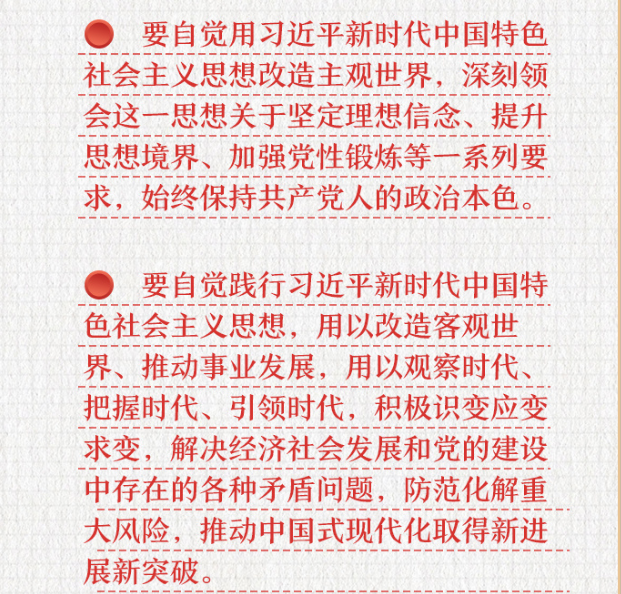 要自觉用习近平新时代中国特色
社会主义思想改造主观世界，深刻领
会这一思想关于坚定理想信念、提升
思想境界、加强党性锻炼等一系列要
求，始终保持共产党人的政治本色。
要自觉践行习近平新时代中国特
色社会主义思想，用以改造客观世
界、推动事业发展，用以观察时代、
把握时代、引领时代，积极识变应变
求变，解决经济社会发展和党的建设
中存在的各种矛盾问题，防范化解重
大风险，推动中国式现代化取得新进
展新突破。